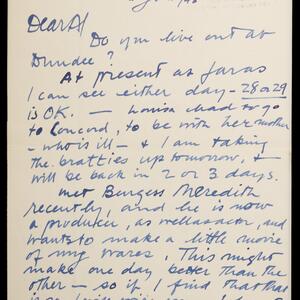 Dear Al
Do you live out at
Dundee?
At present as far as
I can see either day – 28 or 29
is OK. – Louisa had to go
to Concord, to be with her mother
– who is ill – & I am taking
the bratties up tomorrow, &
will be back in 2 or 3 days.
Met Burgess Meredith
recently, and he is now
a producer, as well as actor, and
wants to make a little movie
of my wares. This might
make one day better than the
other – so if I find that that